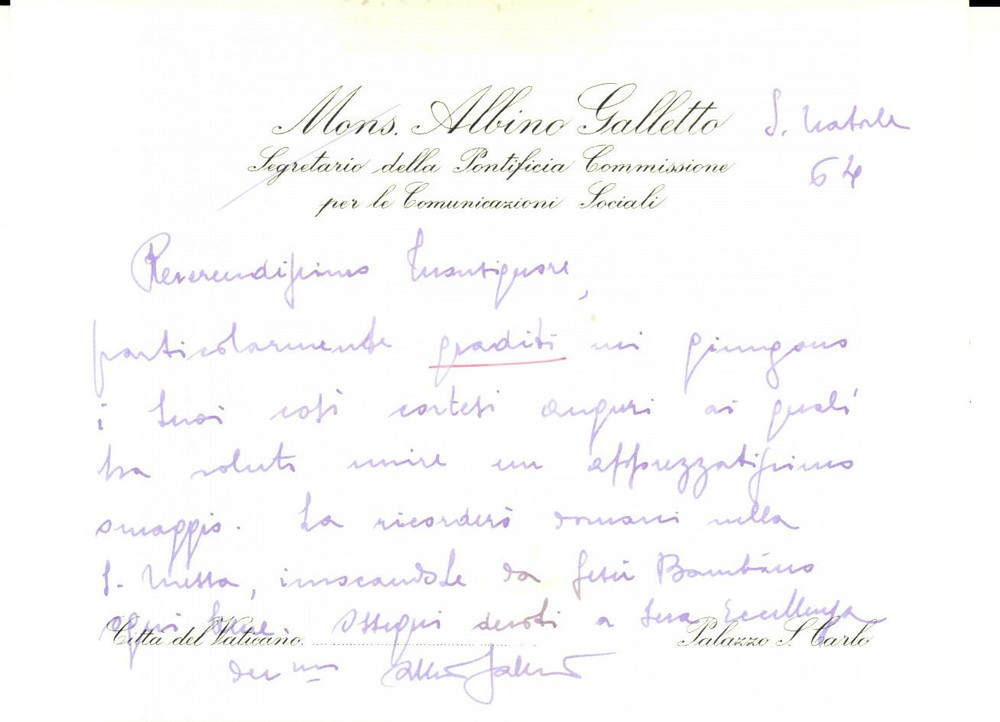 Mons. Albino Galletto
S. Natale
64
Segretario della Pontificia Commissione
per le Comunicazioni Sociali
Reverendissimo Monsignore,
particolarmente graditi mi giungono
i Suoi così cortesi auguri ai quali
ha voluto unire un apprezzatissimo
omaggio. La ricorderò domani nella
S. Messa, invocandole da Gesù Bambino
ogni bene. Ossequi devoti a Sua Eccellenza
Città del Vaticano.
Palazzo S. Carlo
dev.mo Albino Galletto